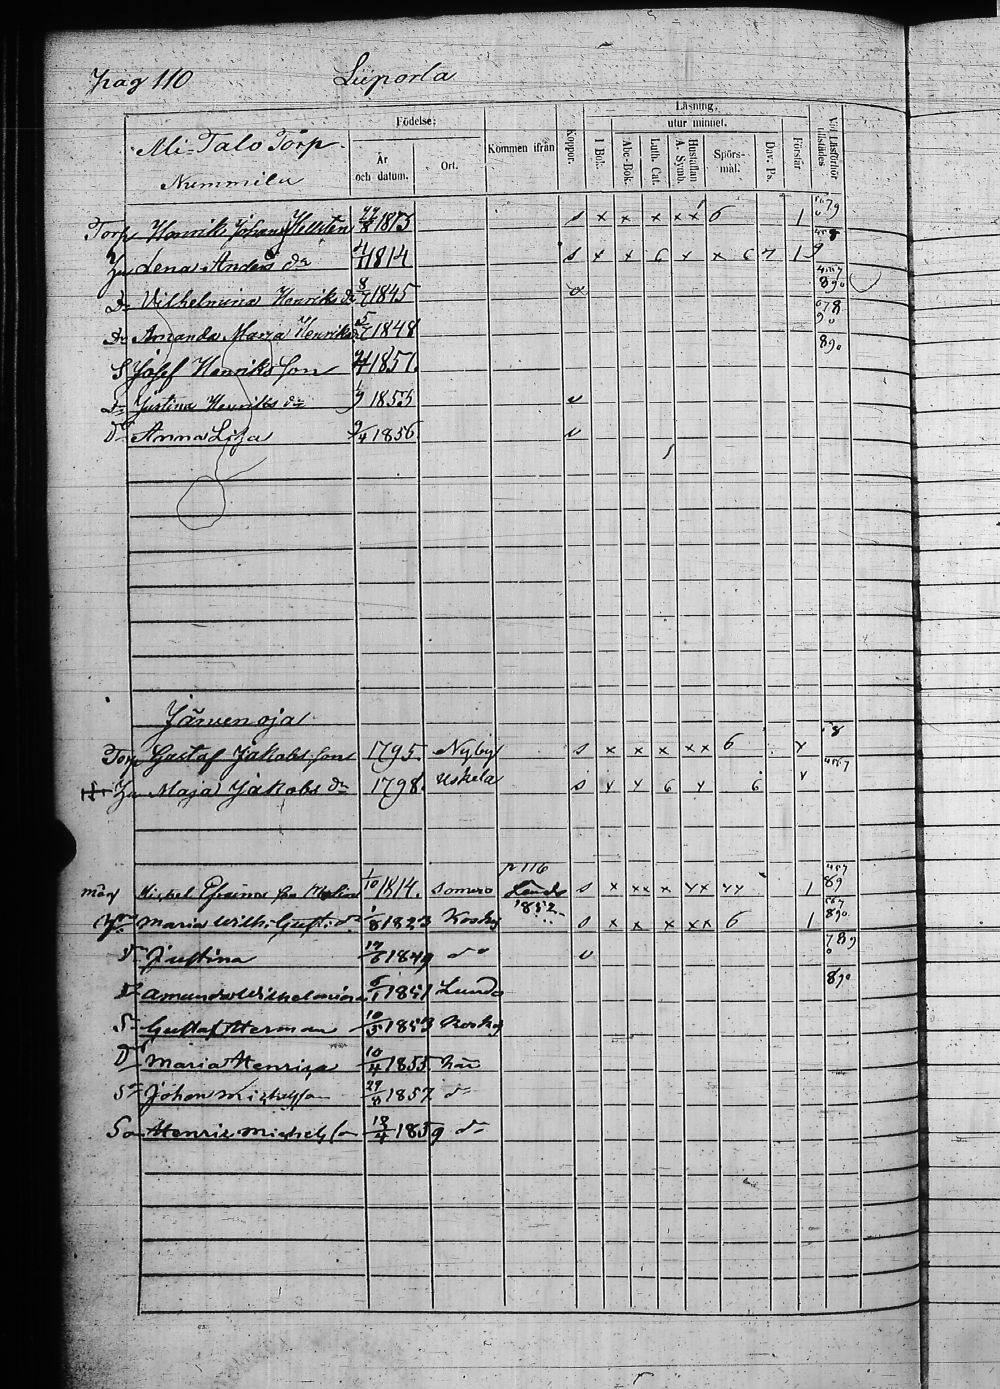 Pag 110 Liiporla
Ali-Talo Torp
Nummila
Födelse:
År och datum.
Ort.
Kommen ifrån
Koppor.
Läsning,
utur minnet.
I Bok.
Abc-Bok.
Luth. Cat.
Hustaflan A. Symb.
Spörsmål.
Dav. Ps.
Förstår
Vid Läsförhör tillstädes
Torp Henrik Johans Hellsten 1813 s x x x x x 6 1
Hu Lena Anders dr 1814 s x x 6 x x 6 7 1
Dr Vilhelmina Henriks dr 8/7 1845
Dr Amanda Maria Henriks 5/7 1848
S Josef Henriks son 1851.
Dr Justina Henriks dr 1/9 1853 v
Dr Anna Lisa 9/4 1856 v
Järvenoja
Torp Gustaf Jakobs son 1795. Nyby s x x x x x 6 x
Hu Maja Jakobs dr 1798. Uskela s x x 6 x 6 x
p 116
måg Michel Efraims son 1/10 1814. Somero s x xx x xx xx 1
1852
Hu Maria Wilh. Gust. dr 1/8 1823 Koskis s x x x xx 6 1
D Justina 17/6 1849 do v
Dr Amanda Wilhelmina 6/1 1851 Lunda
Sn Gustaf Herman 10/5 1853 Koskis
Dr Maria Henrica 10/4 1855 här
Sn Johan Michelson 29/8 1857 do
So Henric Michelson 18/4 1859 do